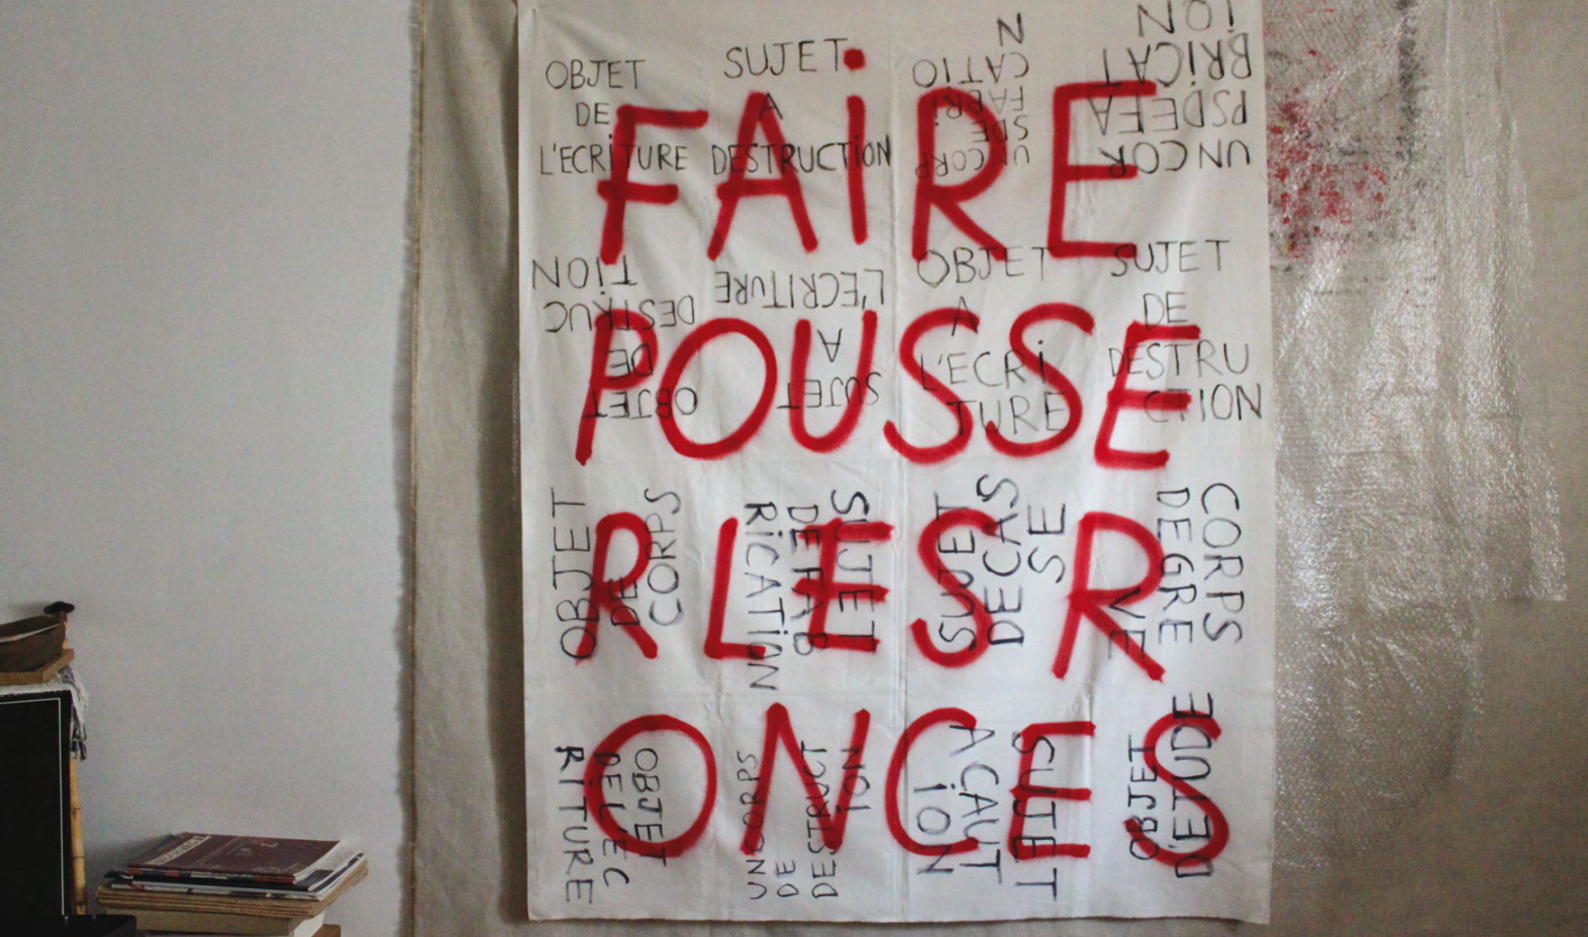 FAiRE
POUSSE
RLESR
ONCES
OBJET
DE
L'ECRiTURE
SUJET
A
DESTRUCTiON
UN CORP
SDE
FABRi
CATIO
N
UN COR
PSDEFA
BRiCAT
iON
OBJET
DE
DESTRUC
TiON
SUJET
A
L'ECRITURE
OBJET
A
L'ECRi
TURE
SUJET
DE
DESTRU
CTION
OBJET
DE
CORPS
SUJET
DEFAB
RiCATiON
SUJET
DECAS
SE
CORPS
DEGRE
VE
OBJET
DEL'EC
RiTURE
UNCORPS
DE
DESTRUCT
ION
SUJET
ACAUT
iON
OBJET
D'ETUDE